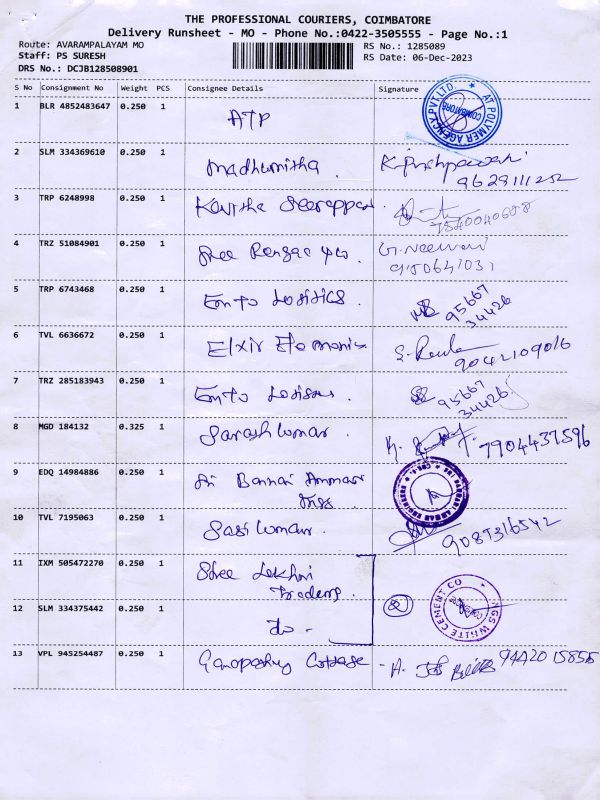 THE PROFESSIONAL COURIERS, COIMBATORE
Delivery Runsheet - MO - Phone No.:0422-3505555 - Page No.:1
Route: AVARAMPALAYAM MO
Staff: PS SURESH
DRS No.: DCJB128508901
RS No.: 1285089
RS Date: 06-Dec-2023
S No Consignment No Weight PCS Consignee Details Signature
1 BLR 4852483647 0.250 1 ATP AT POLYMER AGENCY PVT. LTD. COIMBATORE
2 SLM 334369610 0.250 1 Madhumitha.
9629111252
3 TRP 6248998 0.250 1 Kavitha
4 TRZ 51084901 0.250 1 Shree
5 TRP 6743468 0.250 1 95667
34426
6 TVL 6636672 0.250 1 Elxir 9042109016
7 TRZ 285183943 0.250 1 95667
34426
8 MGD 184132 0.325 1 7904437596
9 EDQ 14984886 0.250 1 Sri Bannari Amman
10 TVL 7195063 0.250 1 Sasi kumar. 9087316542
11 IXM 505472270 0.250 1 Shree
Traders.
12 SLM 334375442 0.250 1 do - NGS WHITE CEMENT CO
13 VPL 945254487 0.250 1